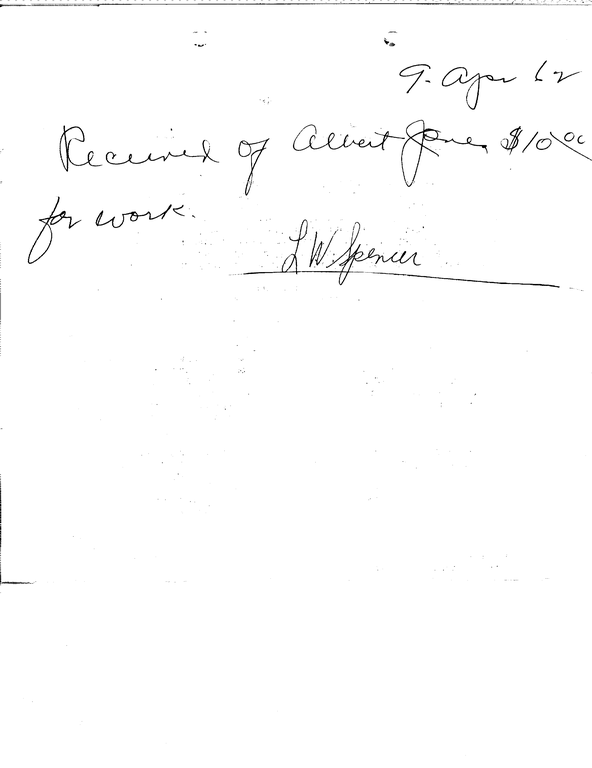 9. Apr 62
Received of Albert Jones $10.00
for work.
L W. Spencer